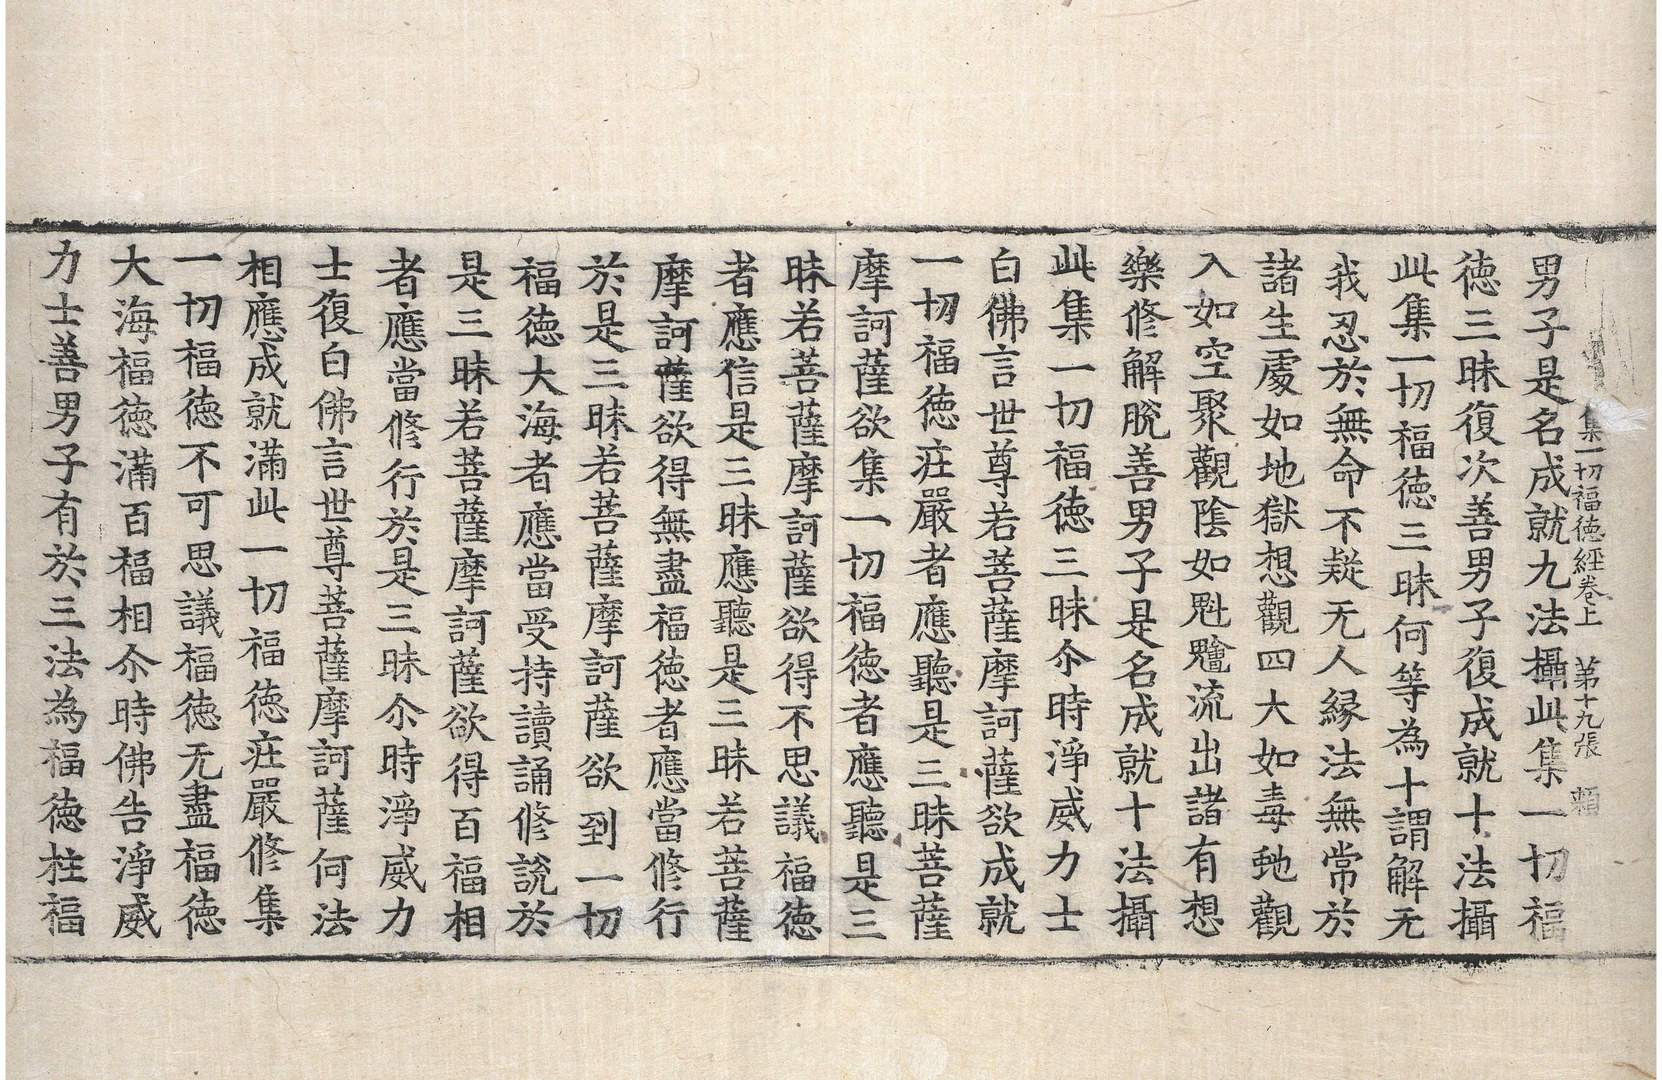 集一切福徳經卷上 第十九張 頼
男子是名成就九法攝此集一切福
徳三昧復次善男子復成就十法攝
此集一切福徳三昧何等為十謂解无
我忍於無命不疑无人緣法無常於
諸生處如地獄想觀四大如毒虵觀
入如空聚觀陰如魁魁流出諸有想
樂修解脫善男子是名成就十法攝
此集一切福徳三昧尒時淨威力士
白佛言世尊若菩薩摩訶薩欲成就
一切福徳莊嚴者應聽是三昧菩薩
摩訶薩欲集一切福徳者應聽是三
昧若菩薩摩訶薩欲得不思議福徳
者應信是三昧應聽是三昧若菩薩
摩訶薩欲得無盡福徳者應當修行
於是三昧若菩薩摩訶薩欲到一切
福徳大海者應當受持讀誦修說於
是三昧若菩薩摩訶薩欲得百福相
者應當修行於是三昧尒時淨威力
士復白佛言世尊菩薩摩訶薩何法
相應成就滿此一切福徳莊嚴修集
一切福徳不可思議福徳无盡福徳
大海福徳滿百福相尒時佛告淨威
力士善男子有於三法為福徳柱福